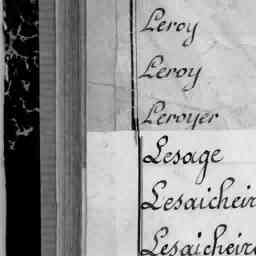 Leroy
Leroy
Leroyer
Lesage
Lesaicheir
Lesaicheire